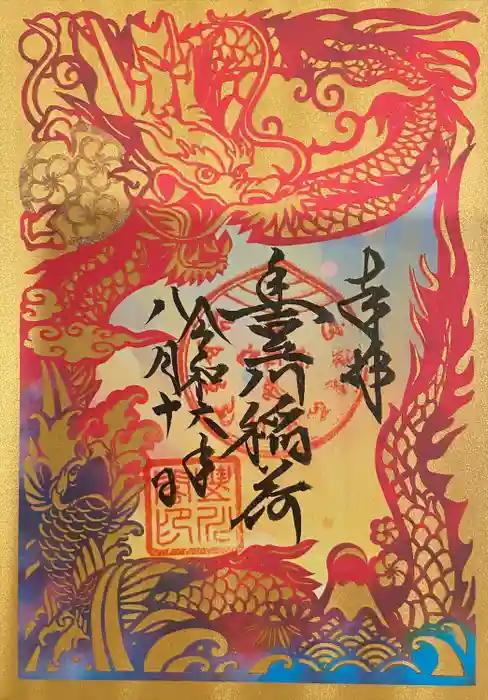 奉拝
豊川稲荷
令和六年
八月十日